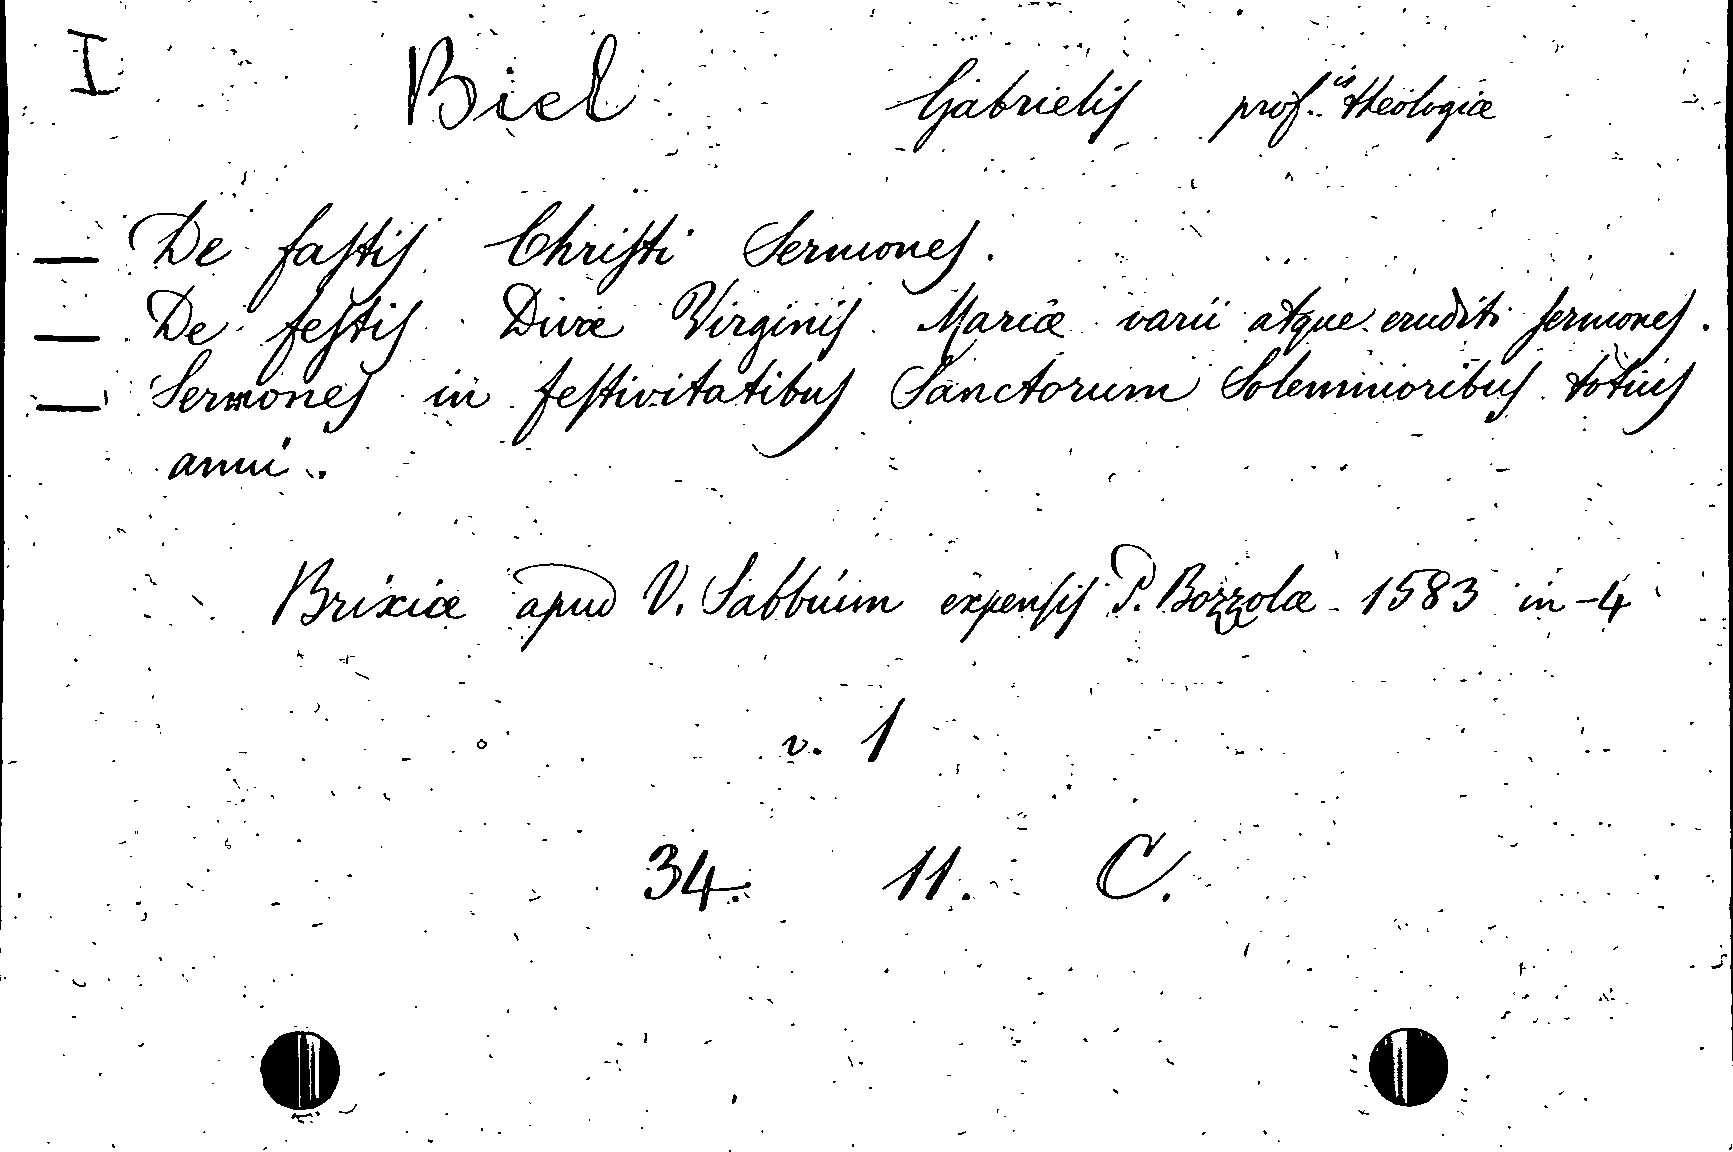 I Biel Gabrielis prof.is theologiæ
— De fastis Christi Sermones.
— De festis Divæ Virginis Mariæ varii atque eruditi sermones.
— Sermones in festivitatibus Sanctorum Solemnioribus totius
anni.
Brixiæ apud V. Sabbium expensis P. Bozzolæ 1583 in-4
v. 1
34. 11. C.